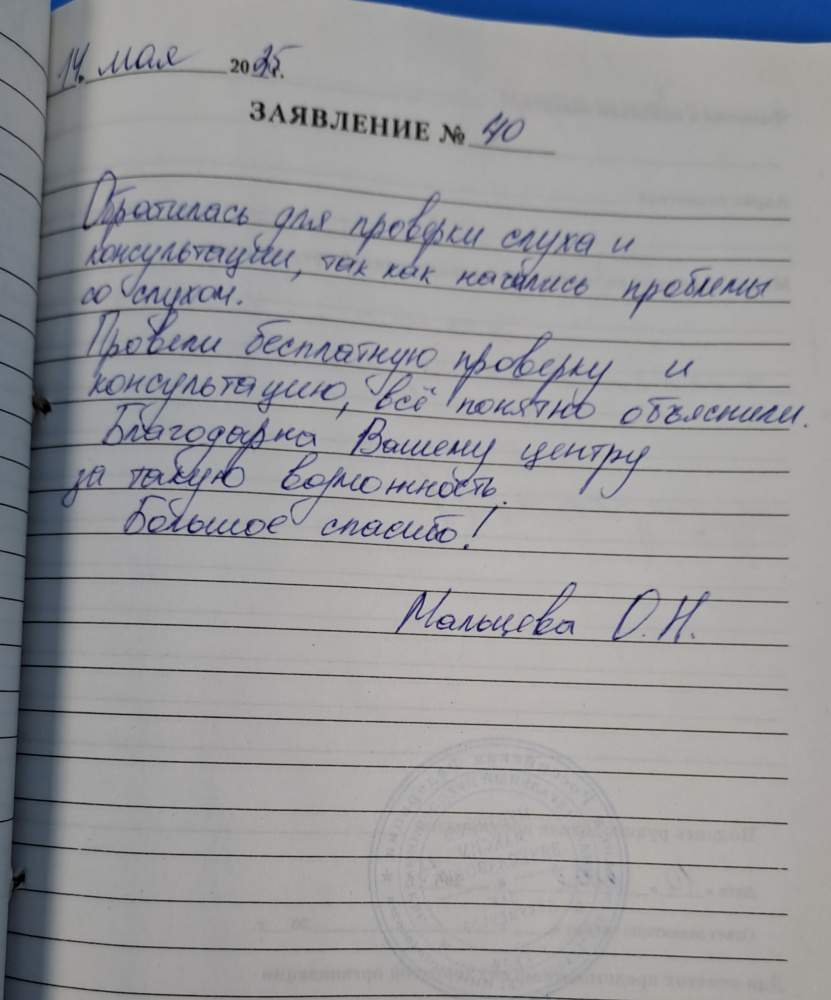 14. мая 2025г.
ЗАЯВЛЕНИЕ № 40
Обратилась для проверки слуха и
консультации, так как начались проблемы
со слухом.
Провели бесплатную проверку и
консультацию, всё понятно объяснили.
Благодарна Вашему центру
за такую возможность.
Большое спасибо!
Мальцева О.Н.